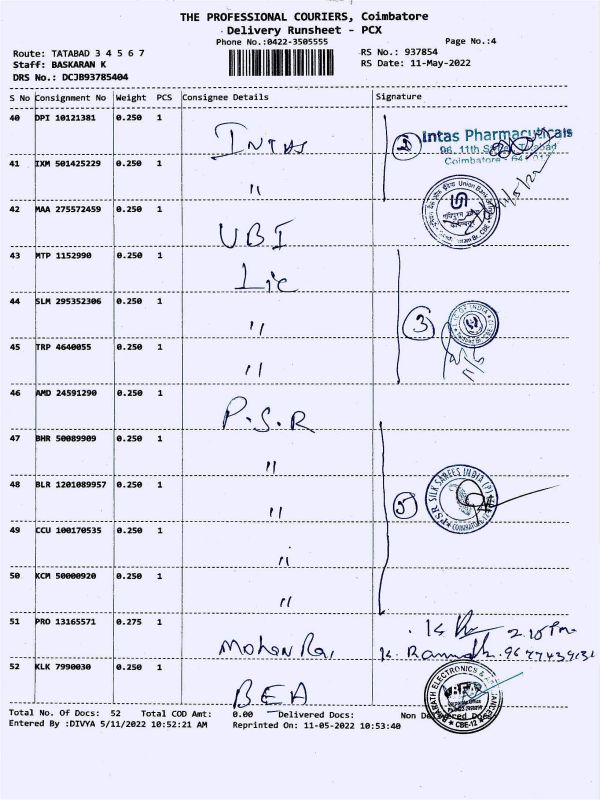 THE PROFESSIONAL COURIERS, Coimbatore
Delivery Runsheet - PCX
Phone No.:0422-3505555
Page No.:4
Route: TATABAD 3 4 5 6 7
RS No.: 937854
Staff: BASKARAN K
RS Date: 11-May-2022
DRS No.: DCJB93785404
S No Consignment No Weight PCS Consignee Details Signature
40 DPI 10121381 0.250 1 Intas 2 Intas Pharmaceuticals
96, 11th Tatabad
Coimbatore - 641012
41 IXM 501425229 0.250 1 "
11/5/22
42 MAA 275572459 0.250 1 UBI
43 MTP 1152990 0.250 1 Lic
44 SLM 295352306 0.250 1 " 3
45 TRP 4640055 0.250 1 "
46 AMD 24591290 0.250 1 P.S.R
47 BHR 50089909 0.250 1 "
48 BLR 1201089957 0.250 1 " 5 P.S.R SILK SAREES INDIA (P)
COIMBATORE
49 CCU 100170535 0.250 1 "
50 KCM 50000920 0.250 1 "
51 PRO 13165571 0.275 1 Mohan Raj 2.15 Pm
52 KLK 7990030 0.250 1 BEA BHARATH ELECTRONICS &
CBE-12
Total No. Of Docs: 52 Total COD Amt: 0.00 Delivered Docs: Non Delivered Docs:
Entered By :DIVYA 5/11/2022 10:52:21 AM Reprinted On: 11-05-2022 10:53:40